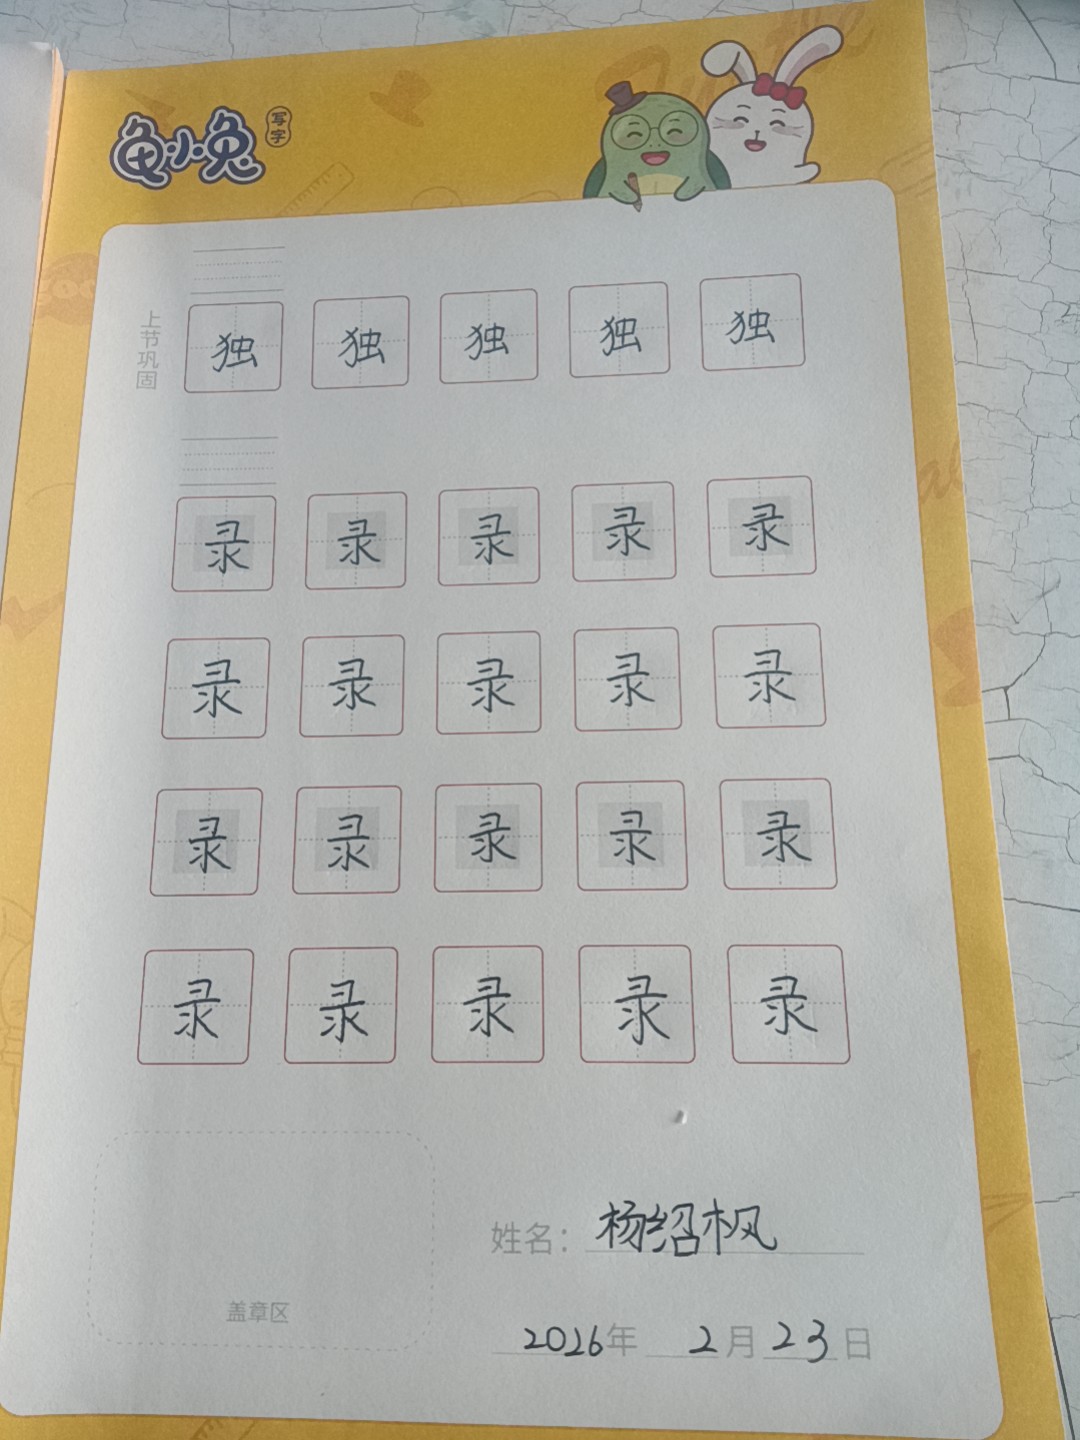 龟小兔写字
上节巩固
独 独 独 独 独
录 录 录 录 录
录 录 录 录 录
录 录 录 录 录
录 录 录 录 录
姓名：杨绍枫
盖章区
2026年 2月23日